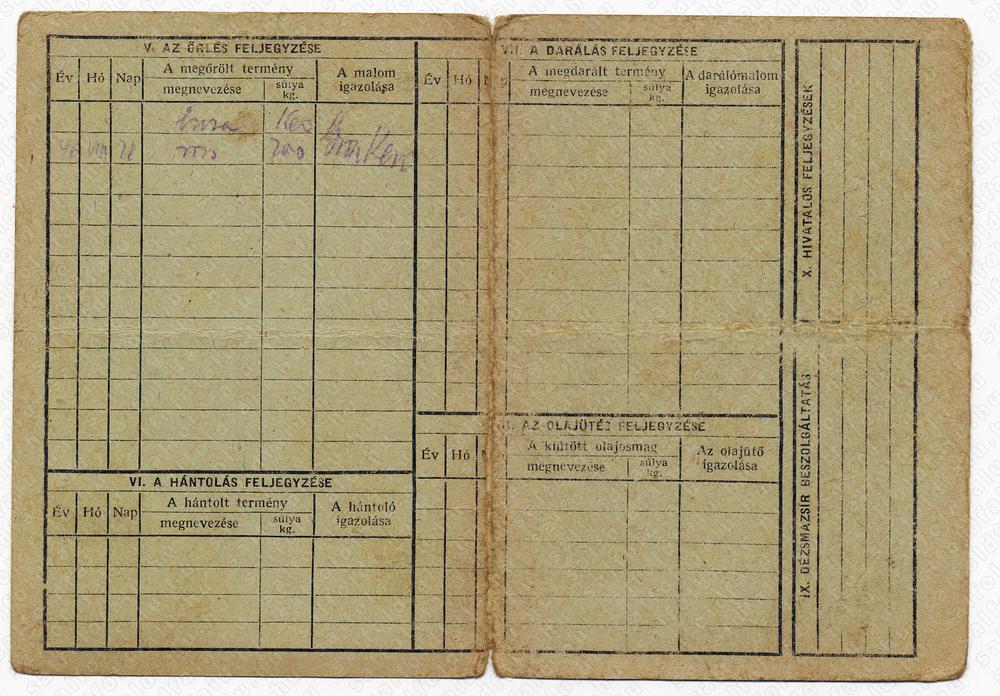 V. AZ ŐRLÉS FELJEGYZÉSE
Év Hó Nap A megőrölt termény A malom igazolása
megnevezése súlya kg.
VI. A HÁNTOLÁS FELJEGYZÉSE
Év Hó Nap A hántolt termény A hántoló igazolása
megnevezése súlya kg.
A DARÁLÁS FELJEGYZÉSE
Év Hó A megdarált termény A darálómalom igazolása
megnevezése súlya kg.
AZ OLAJÜTÉS FELJEGYZÉSE
Év Hó A kiütött olajosmag Az olajütő igazolása
megnevezése súlya kg.
X. HIVATALOS FELJEGYZÉSEK
IX. DÉZSMAZSÍR BESZOLGÁLTATÁS